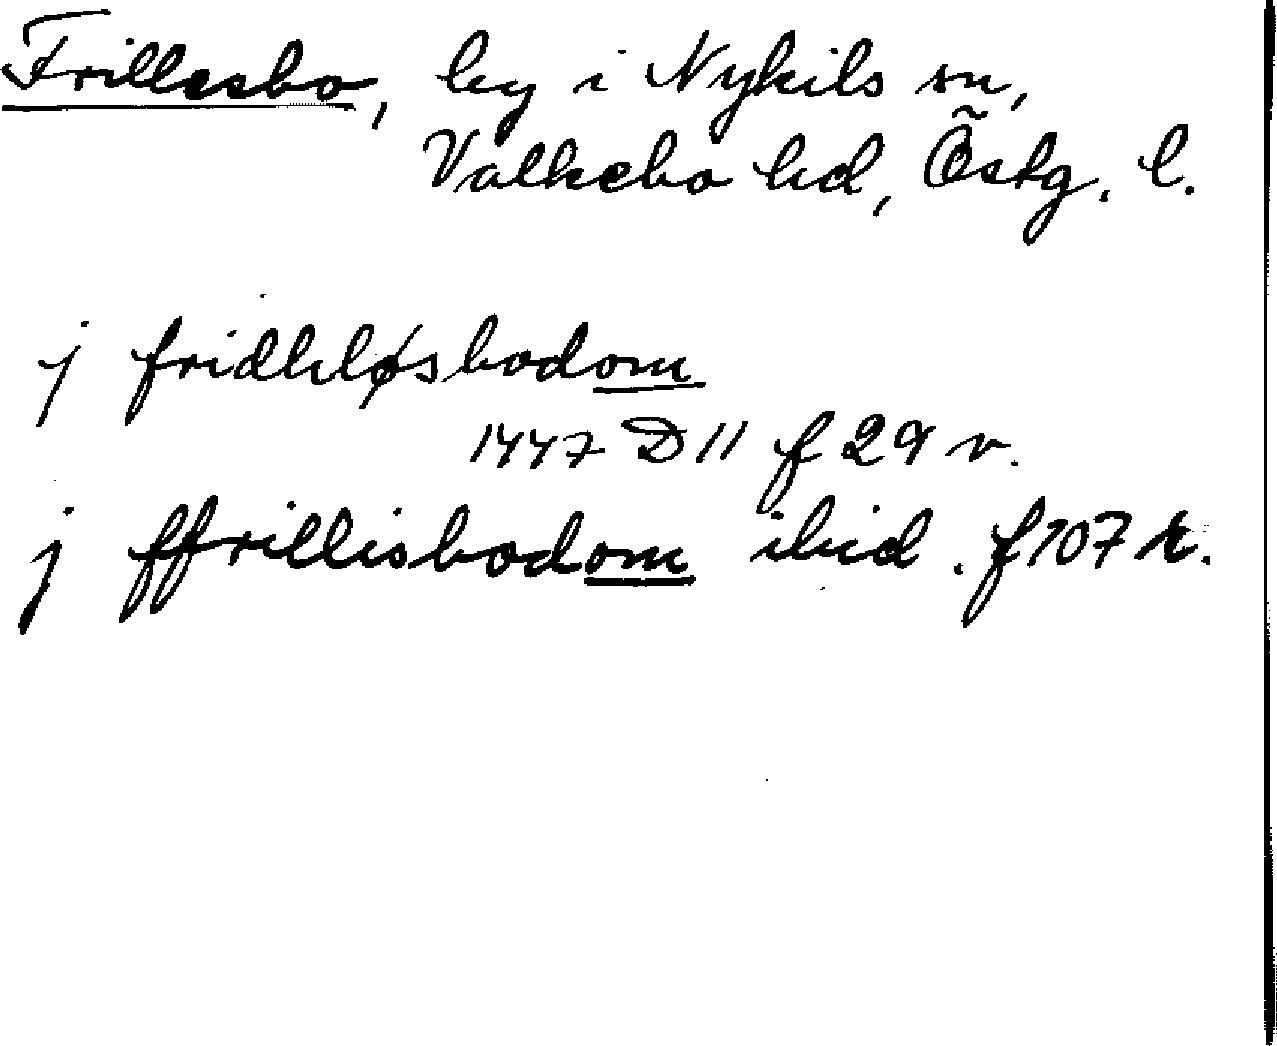 Frillesbo, by i Nykils sn,
Valkebo hd, Östg. l.
j fridhløsbodom
1447 D 11 f 29 v.
j ffrillisbodom ibid. f 107 r.